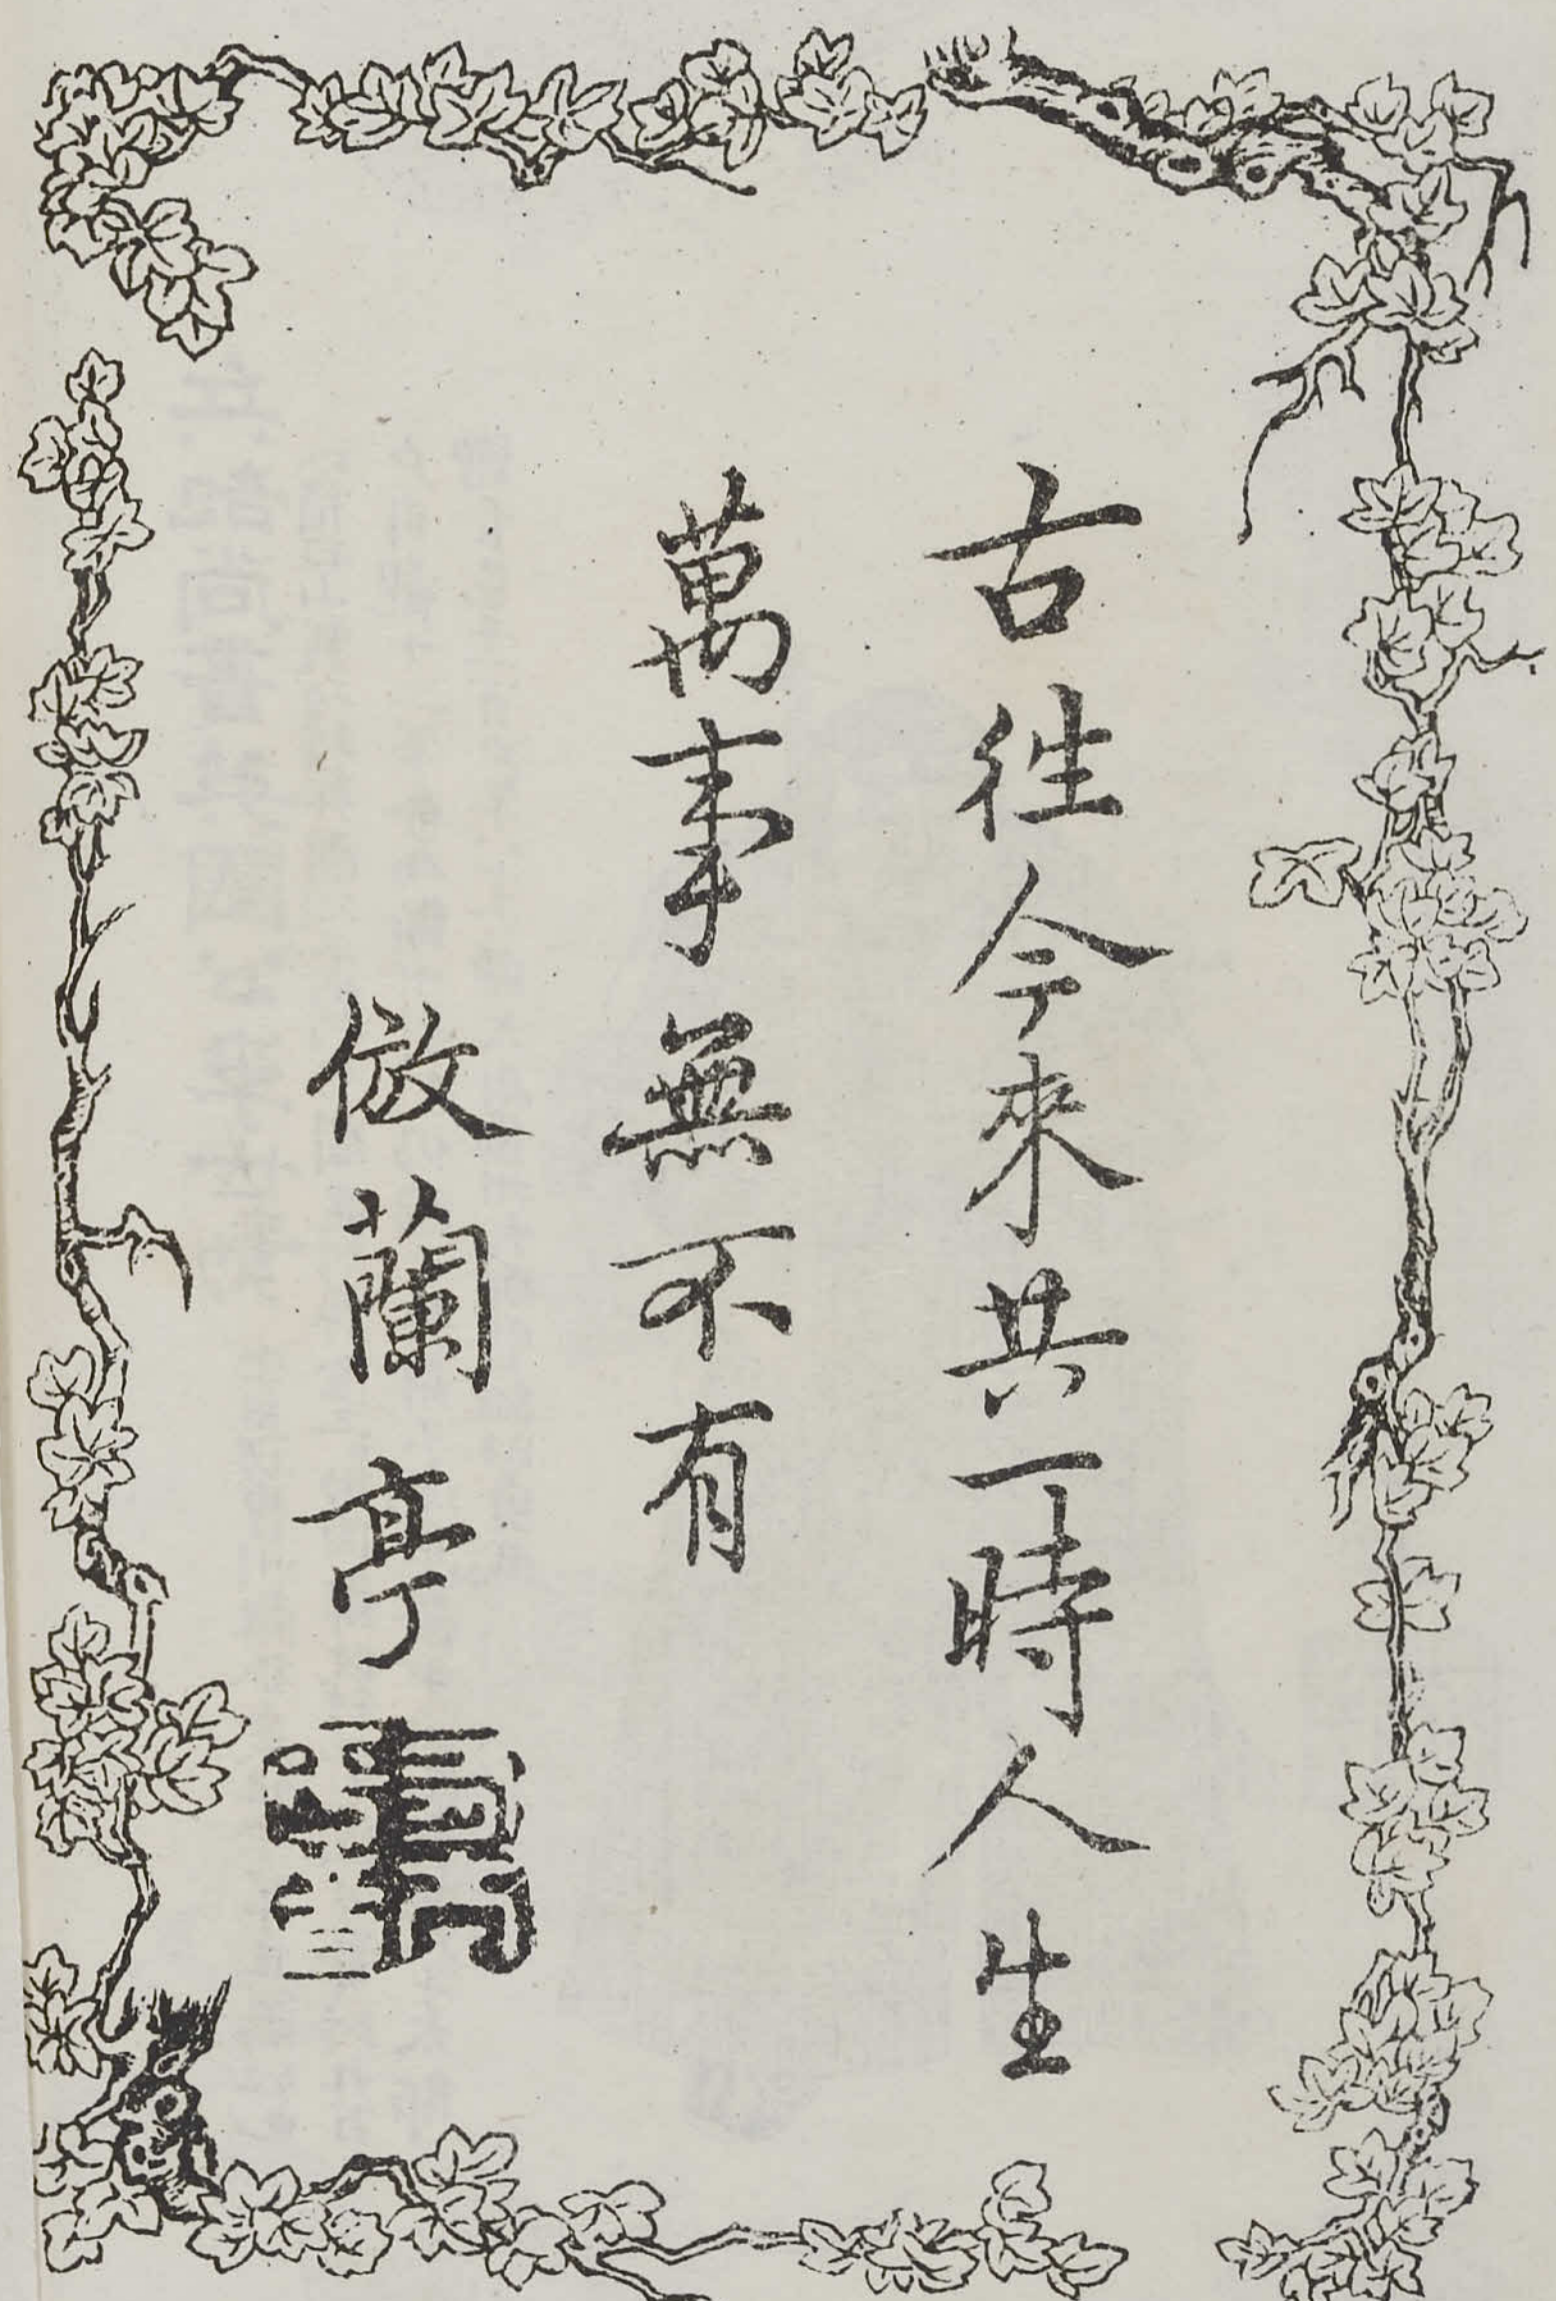 古徃今來共一時人生
萬事無不有
倣蘭亭